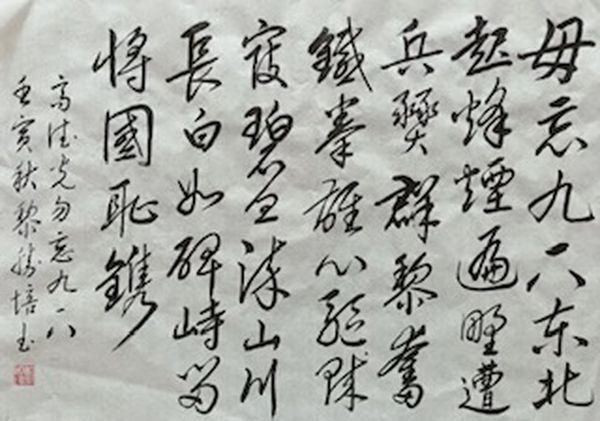 毋忘九一八东北
起烽煙遍野遭
兵燹群黎奮
鐵拳雄心驅賊
寇碧血染山川
長白如碑峙留
將國恥鐫
高德光勿忘九一八
壬寅秋黎培书